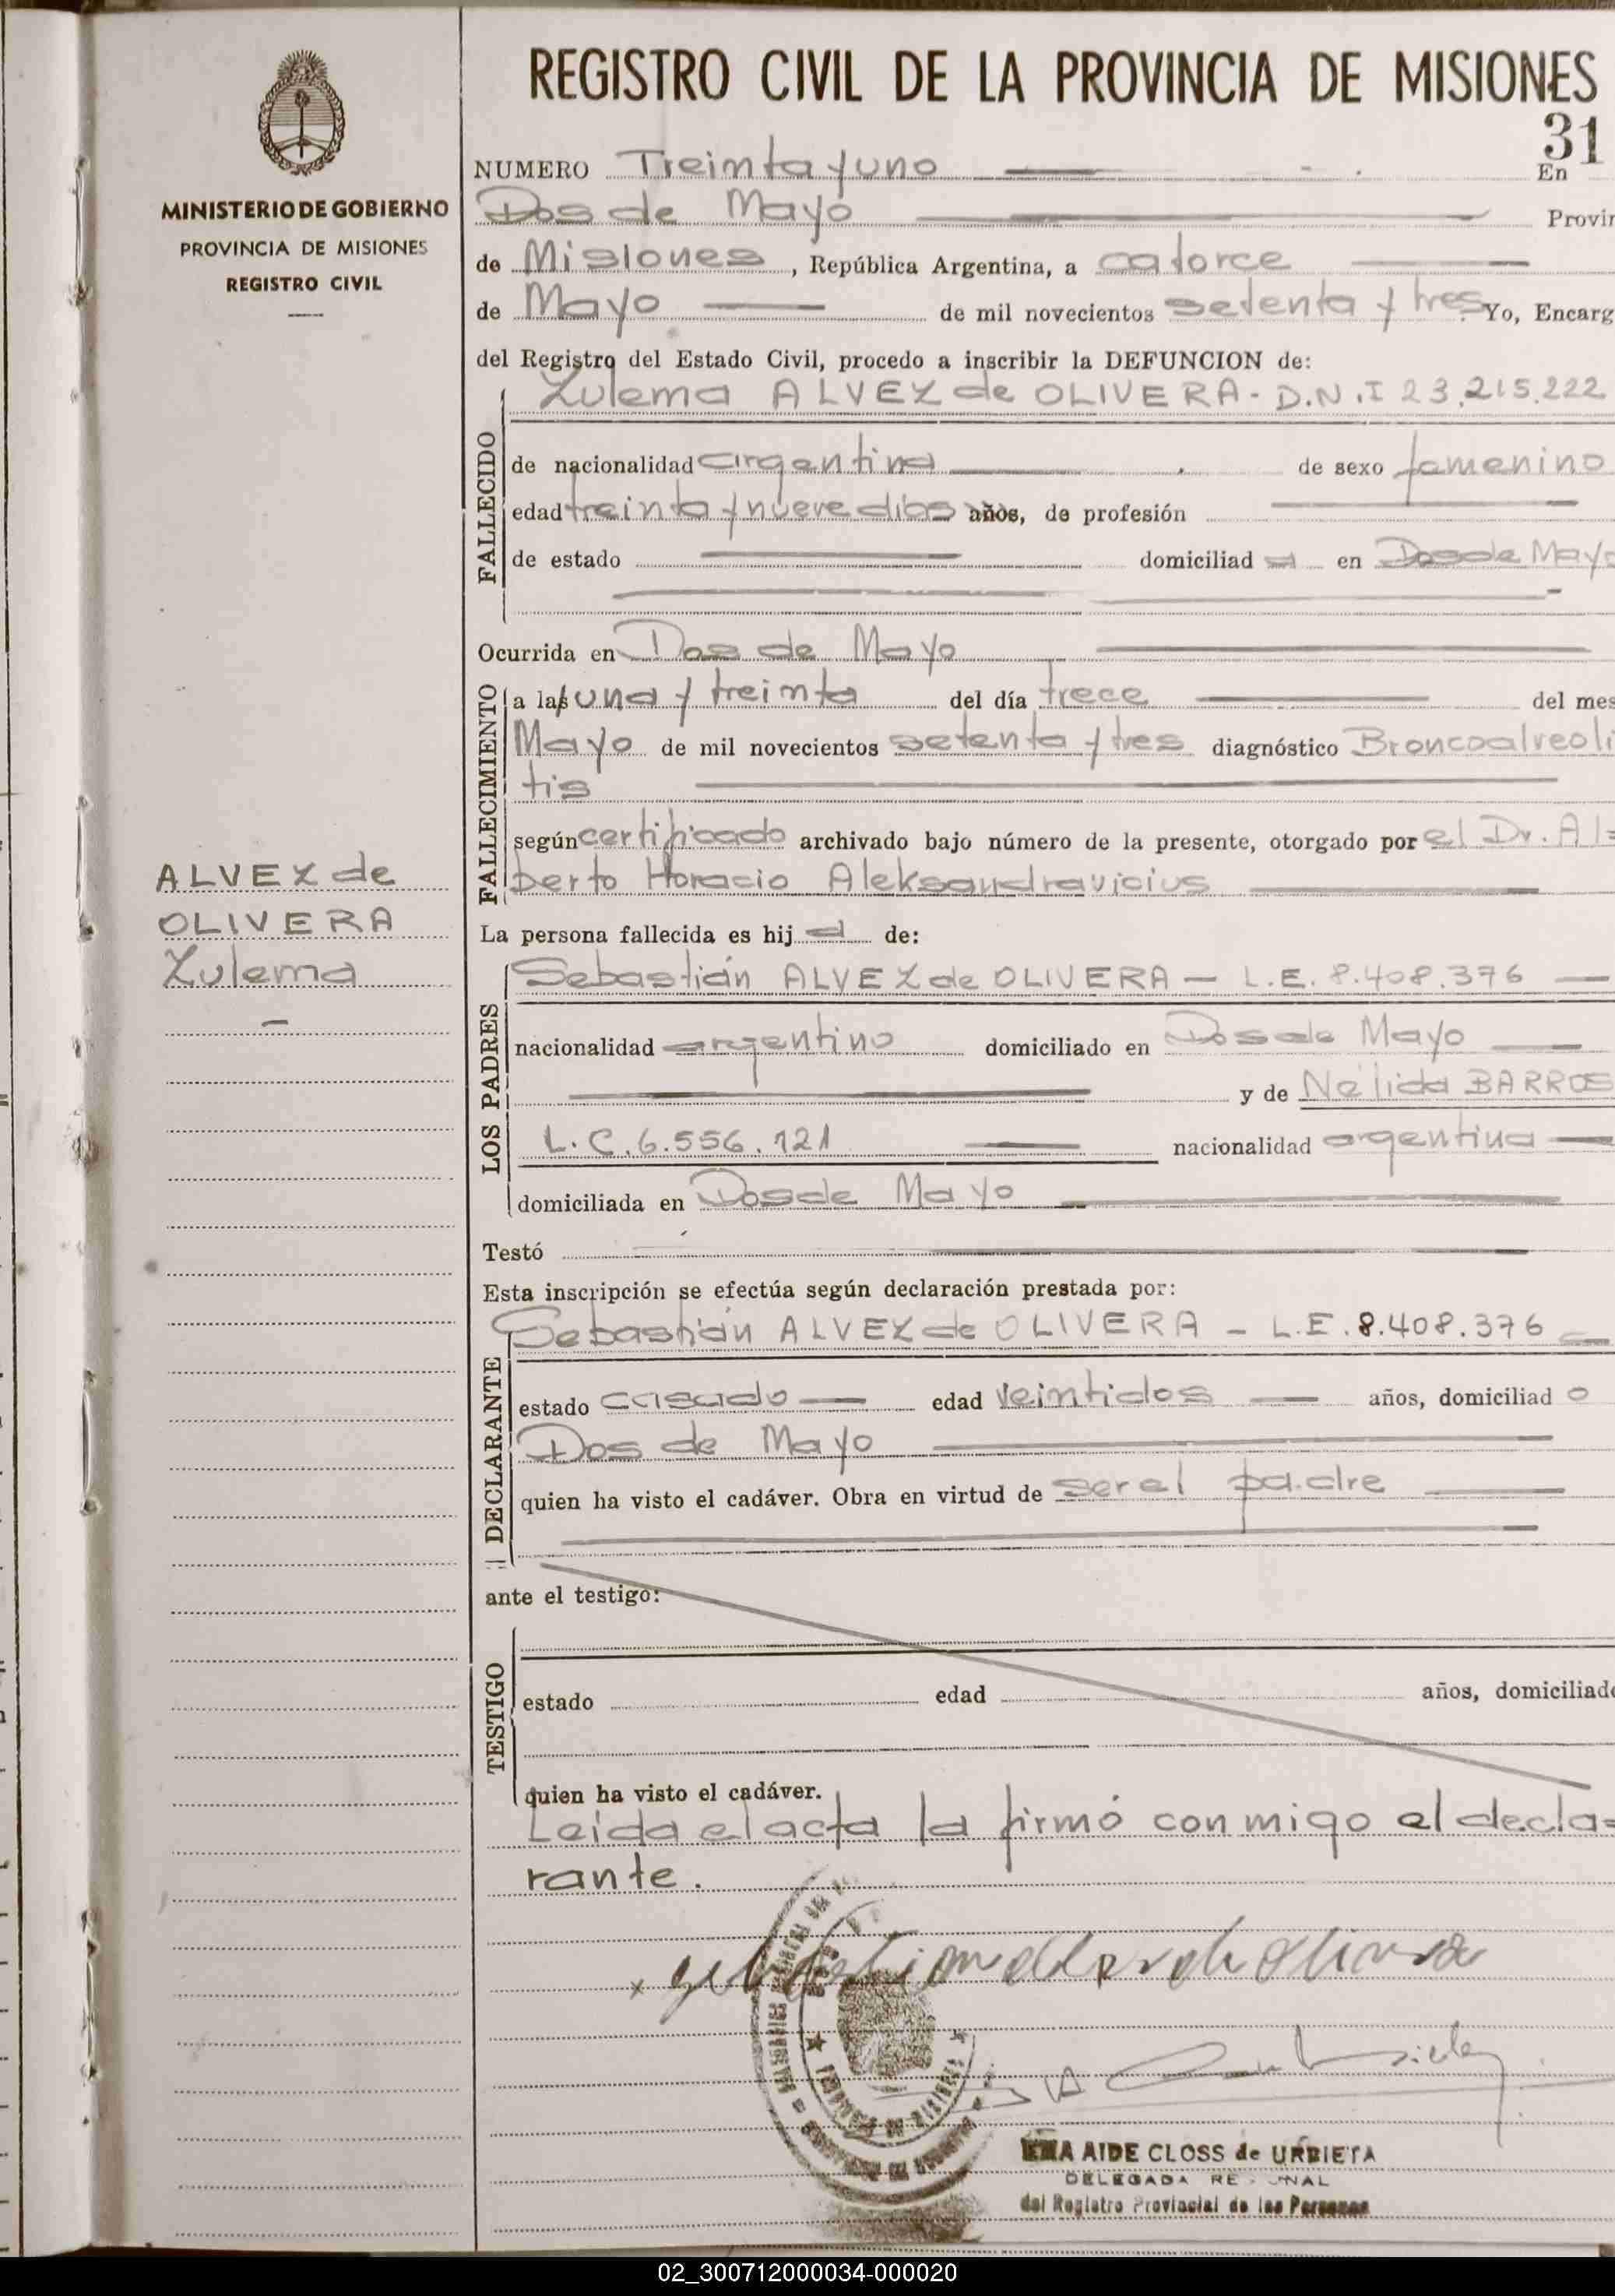 MINISTERIO DE GOBIERNO
PROVINCIA DE MISIONES
REGISTRO CIVIL
ALVEZ de
OLIVERA
Zulema
REGISTRO CIVIL DE LA PROVINCIA DE MISIONES
31
NUMERO Treinta y uno En
Dos de Mayo Provin
de Misiones, República Argentina, a catorce
de Mayo de mil novecientos setenta y tres Yo, Encarg
del Registro del Estado Civil, procedo a inscribir la DEFUNCION de:
Zulema ALVEZ de OLIVERA - D.N.I 23.215.222
FALLECIDO
de nacionalidad argentina de sexo femenino
edad treinta y nueve días años, de profesión
de estado domiciliad a en Dos de Mayo
Ocurrida en Dos de Mayo
FALLECIMIENTO
a las una y treinta del día trece del mes
Mayo de mil novecientos setenta y tres diagnóstico Broncoalveoli
tis
según certificado archivado bajo número de la presente, otorgado por el Dr. Al=
berto Horacio Aleksandravicius
La persona fallecida es hij a de:
LOS PADRES
Sebastián ALVEZ de OLIVERA - L.E. 8.408.376
nacionalidad argentino domiciliado en Dos de Mayo
y de Nélida BARROS
L.C. 6.556.121 nacionalidad argentina
domiciliada en Dos de Mayo
Testó
Esta inscripción se efectúa según declaración prestada por:
DECLARANTE
Sebastián ALVEZ de OLIVERA - L.E. 8.408.376
estado casado edad veintidos años, domiciliad o
Dos de Mayo
quien ha visto el cadáver. Obra en virtud de ser el padre
ante el testigo:
TESTIGO
estado edad años, domiciliado
quien ha visto el cadáver.
Leída el acta la firmó conmigo el decla=
rante.
AIDE CLOSS de URBIETA
DELEGADA
del Registro Provincial de las Personas
02_300712000034-000020